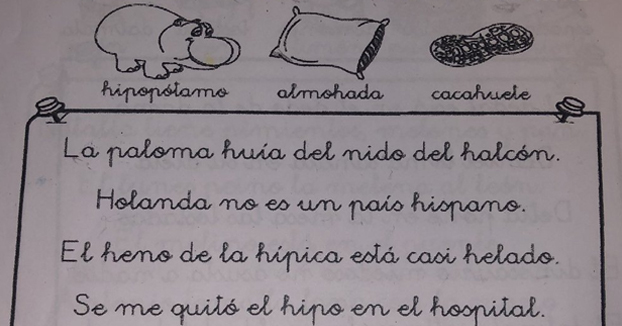 hipopótamo almohada cacahuete
La paloma huía del nido del halcón.
Holanda no es un país hispano.
El heno de la hípica está casi helado.
Se me quitó el hipo en el hospital.